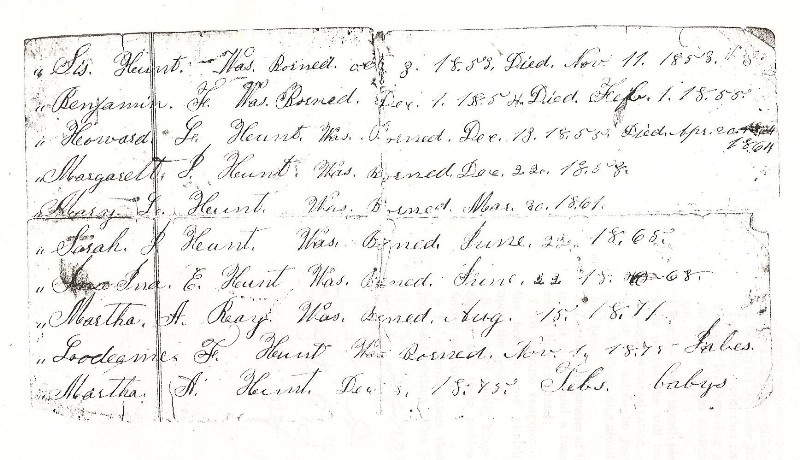 " Sis. Hunt. Was. Borned. oct 3. 1853. Died. Nov. 11. 1853.
" Benjamin. F. Was. Borned. Dec. 1. 1854. Died. Feb. 1. 1855.
" Howard. L. Hunt. Was. Borned. Dec. 13. 1855. Died. Apr. 20.
1864
" Margarett. J. Hunt. Was. Borned Dec. 22. 1858.
" Mary. L. Hunt. Was. Borned. Mar. 30. 1861.
" Sarah. J Hunt. Was. Borned. June. 22. 1865.
" Ina. E. Hunt Was. Borned. June. 22 18. 68.
" Martha. A. Reay. Was. Borned. Aug. 15. 1871
" Loodeame. F. Hunt Was Borned. Nov. 1, 1875 Jabes.
" Martha. A. Hunt. Dec 1875. babys